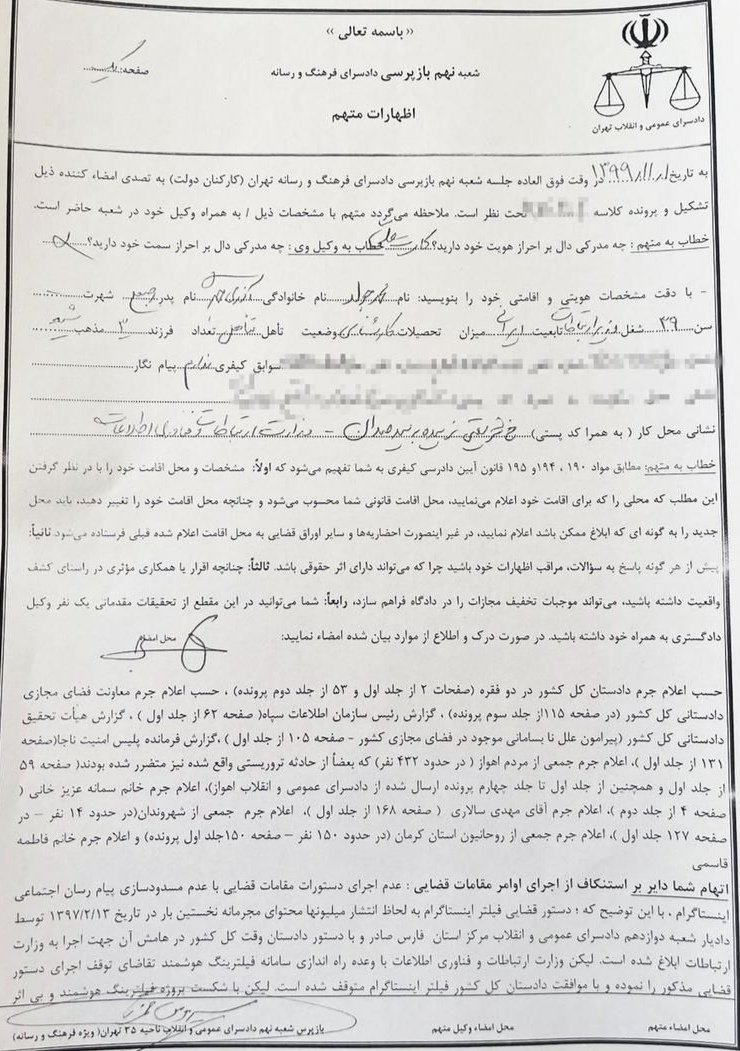 «باسمه تعالی»
شعبه نهم بازپرسی دادسرای فرهنگ و رسانه
صفحه: یک
اظهارات متهم
دادسرای عمومی و انقلاب تهران
به تاریخ ۱۳۹۹/۱۱/۰۱ در وقت فوق العاده جلسه شعبه نهم بازپرسی دادسرای فرهنگ و رسانه تهران (کارکنان دولت) به تصدی امضاء کننده ذیل
تشکیل و پرونده کلاسه تحت نظر است. ملاحظه می‌گردد متهم با مشخصات ذیل / به همراه وکیل خود در شعبه حاضر است.
خطاب به متهم: چه مدرکی دال بر احراز هویت خود دارید؟ کارت ملی خطاب به وکیل وی: چه مدرکی دال بر احراز سمت خود دارید؟
- با دقت مشخصات هویتی و اقامتی خود را بنویسید: نام محمد جواد نام خانوادگی آذری جهرمی نام پدر شهرت
سن ۳۹ شغل وزیر ارتباطات تابعیت ایران میزان تحصیلات کارشناسی وضعیت تأهل متاهل تعداد فرزند ۳ مذهب شیعه
سوابق کیفری ندارم پیام نگار
نشانی محل کار (به همرا کد پستی) خ شریعتی نرسیده به پل سیدخندان - وزارت ارتباطات و فناوری اطلاعات
خطاب به متهم: مطابق مواد ۱۹۰، ۱۹۴ و ۱۹۵ قانون آیین دادرسی کیفری به شما تفهیم می‌شود که اولاً: مشخصات و محل اقامت خود را با در نظر گرفتن
این مطلب که محلی را که برای اقامت خود اعلام می‌نمایید، محل اقامت قانونی شما محسوب می‌شود و چنانچه محل اقامت خود را تغییر دهید، باید محل
جدید را به گونه ای که ابلاغ ممکن باشد اعلام نمایید، در غیر اینصورت احضاریه‌ها و سایر اوراق قضایی به محل اقامت اعلام شده قبلی فرستاده می‌شود ثانیاً:
پیش از هر گونه پاسخ به سؤالات، مراقب اظهارات خود باشید چرا که می‌تواند دارای اثر حقوقی باشد. ثالثاً: چنانچه اقرار یا همکاری مؤثری در راستای کشف
واقعیت داشته باشید، می‌تواند موجبات تخفیف مجازات را در دادگاه فراهم سازد، رابعاً: شما می‌توانید در این مقطع از تحقیقات مقدماتی یک نفر وکیل
دادگستری به همراه خود داشته باشید. در صورت درک و اطلاع از موارد بیان شده امضاء نمایید: محل امضاء
حسب اعلام جرم دادستان کل کشور در دو فقره (صفحات ۲ از جلد اول و ۵۳ از جلد دوم پرونده)، حسب اعلام جرم معاونت فضای مجازی
دادستانی کل کشور (در صفحه ۱۱۵از جلد سوم پرونده)، گزارش رئیس سازمان اطلاعات سپاه( صفحه ۶۲ از جلد اول )، گزارش هیأت تحقیق
دادستانی کل کشور (پیرامون علل نا بسامانی موجود در فضای مجازی کشور - صفحه ۱۰۵ از جلد اول )،گزارش فرمانده پلیس امنیت ناجا(صفحه
۱۳۱ از جلد اول)، اعلام جرم جمعی از مردم اهواز ( در حدود ۴۳۲ نفر) که بعضاً از حادثه تروریستی واقع شده نیز متضرر شده بودند( صفحه ۵۹
از جلد اول و همچنین از جلد اول تا جلد چهارم پرونده ارسال شده از دادسرای عمومی و انقلاب اهواز)، اعلام جرم خانم سمانه عزیز خانی (
صفحه ۴ از جلد دوم )، اعلام جرم آقای مهدی سالاری ( صفحه ۱۶۸ از جلد اول )، اعلام جرم جمعی از شهروندان(در حدود ۱۴ نفر – در
صفحه ۱۲۷ جلد اول)، اعلام جرم جمعی از روحانیون استان کرمان (در حدود ۱۵۰ نفر – صفحه ۱۵۰جلد اول پرونده) و اعلام جرم خانم فاطمه
قاسمی
اتهام شما دایر بر استنکاف از اجرای اوامر مقامات قضایی : عدم اجرای دستورات مقامات قضایی با عدم مسدودسازی پیام رسان اجتماعی
اینستاگرام ، با این توضیح که ؛ دستور قضایی فیلتر اینستاگرام به لحاظ انتشار میلیونها محتوای مجرمانه نخستین بار در تاریخ ۱۳۹۷/۲/۱۳ توسط
دادیار شعبه دوازدهم دادسرای عمومی و انقلاب مرکز استان فارس صادر و با دستور دادستان وقت کل کشور در هامش آن جهت اجرا به وزارت
ارتباطات ابلاغ شده است. لیکن وزارت ارتباطات و فناوری اطلاعات با وعده راه اندازی سامانه فیلترینگ هوشمند تقاضای توقف اجرای دستور
قضایی مذکور را نموده و با موافقت دادستان کل کشور فیلتر اینستاگرام متوقف شده است. لیکن با شکست پروژه فیلترینگ هوشمند و بی اثر
محل امضاء متهم
محل امضاء وکیل متهم
بازپرس شعبه نهم دادسرای عمومی و انقلاب ناحیه ۳۵ تهران( ویژه فرهنگ و رسانه)